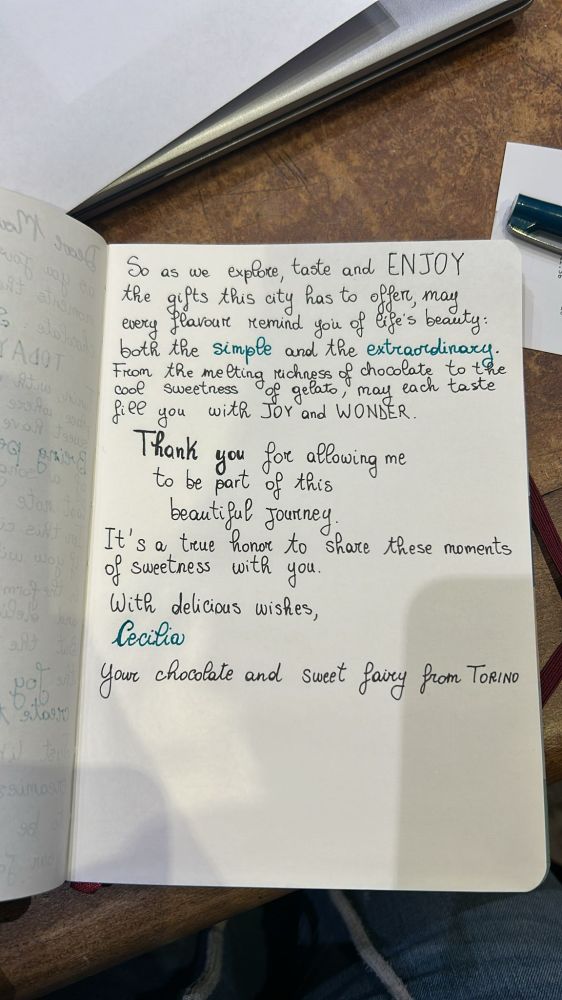 So as we explore, taste and ENJOY
the gifts this city has to offer, may
every flavour remind you of life's beauty:
both the simple and the extraordinary.
From the melting richness of chocolate to the
cool sweetness of gelato, may each taste
fill you with JOY and WONDER.
Thank you for allowing me
to be part of this
beautiful Journey.
It's a true honor to share these moments
of sweetness with you.
With delicious wishes,
Cecilia
Your chocolate and sweet fairy from TORINO